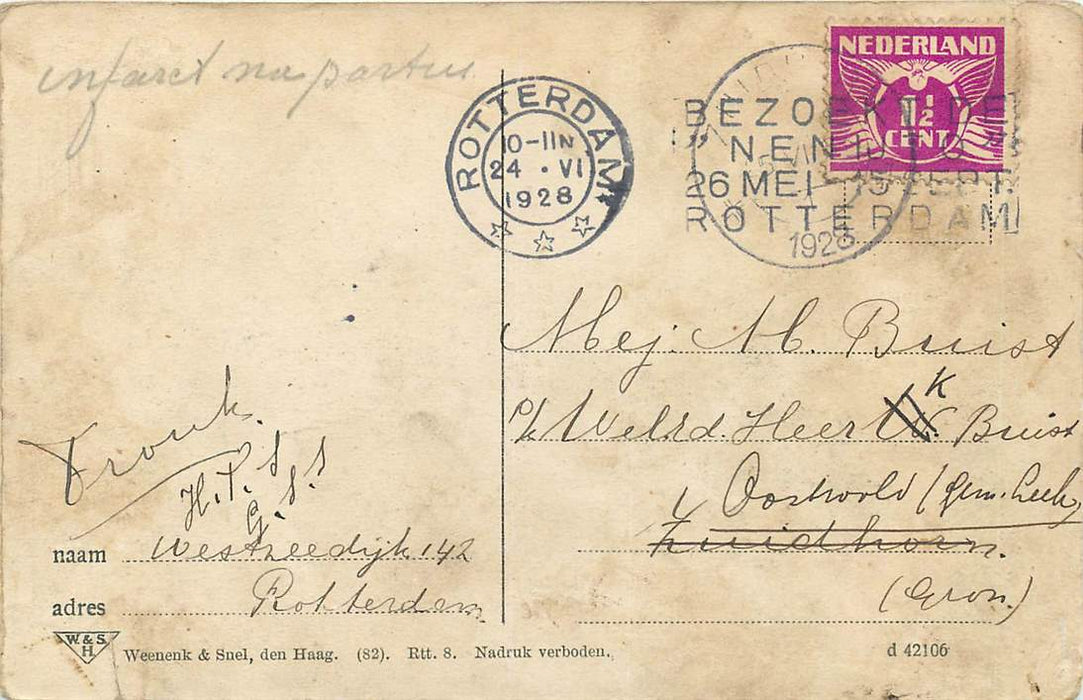 infarct na partus
ROTTERDAM
10-11N
24 . VI
1928
BEZOEKT DE
"NENIJTO"
26 MEI - SEPT.
ROTTERDAM
1928
NEDERLAND
1½
CENT
Mej. M. Buist
p/a WelEd. Heer K. Buist
Oostwold (gem. Leek)
Zuidhorn.
(Gron.)
H.
G.
naam Westzeedijk 142
adres Rotterdam
W. & S.
H
Weenenk & Snel, den Haag. (82). Rtt. 8. Nadruk verboden.
d 42106